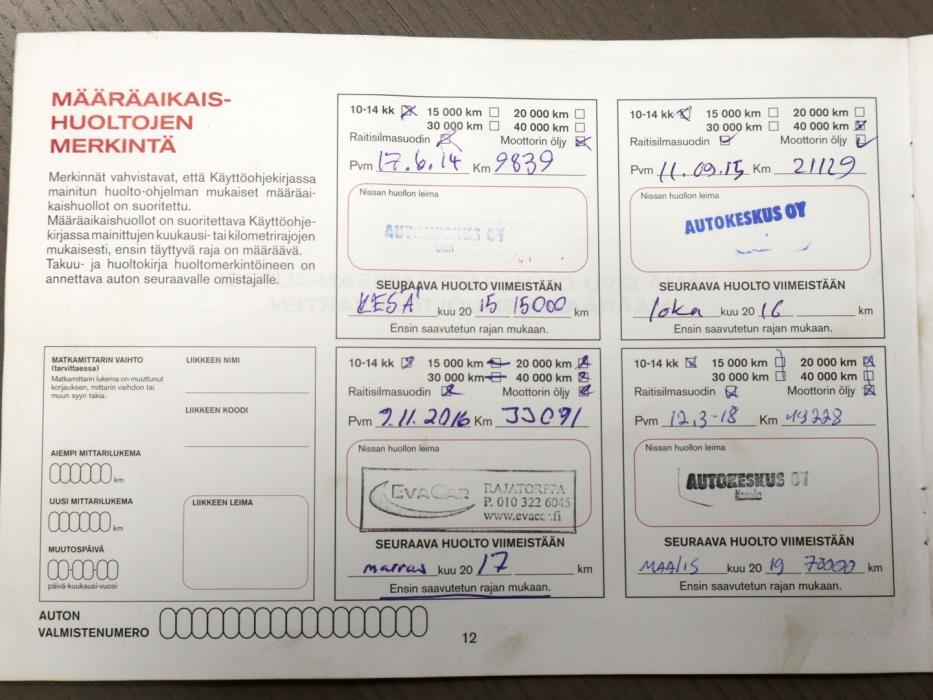 MÄÄRÄAIKAIS-
HUOLTOJEN
MERKINTÄ
Merkinnät vahvistavat, että Käyttöohjekirjassa
mainitun huolto-ohjelman mukaiset määräai-
kaishuollot on suoritettu.
Määräaikaishuollot on suoritettava Käyttöohje-
kirjassa mainittujen kuukausi- tai kilometrirajojen
mukaisesti, ensin täyttyvä raja on määräävä.
Takuu- ja huoltokirja huoltomerkintöineen on
annettava auton seuraavalle omistajalle.
10-14 kk 15 000 km 20 000 km
30 000 km 40 000 km
Raitisilmasuodin Moottorin öljy
Pvm 17.6.14 Km 9839
Nissan huollon leima
AUTOKESKUS OY
SEURAAVA HUOLTO VIIMEISTÄÄN
KESÄ kuu 20 15 15000 km
Ensin saavutetun rajan mukaan.
10-14 kk 15 000 km 20 000 km
30 000 km 40 000 km
Raitisilmasuodin Moottorin öljy
Pvm 11.09.15 Km 21129
Nissan huollon leima
AUTOKESKUS OY
SEURAAVA HUOLTO VIIMEISTÄÄN
loka kuu 20 16 km
Ensin saavutetun rajan mukaan.
MATKAMITTARIN VAIHTO
(tarvittaessa)
Matkamittarin lukema on muuttunut
korjauksen, mittarin vaihdon tai
muun syyn takia.
AIEMPI MITTARILUKEMA
km
UUSI MITTARILUKEMA
km
MUUTOSPÄIVÄ
päivä-kuukausi-vuosi
LIIKKEEN NIMI
LIIKKEEN KOODI
LIIKKEEN LEIMA
10-14 kk 15 000 km 20 000 km
30 000 km 40 000 km
Raitisilmasuodin Moottorin öljy
Pvm 9.11.2016 Km 33091
Nissan huollon leima
EVACAR RAJATORPPA
P. 010 322 6045
www.evacar.fi
SEURAAVA HUOLTO VIIMEISTÄÄN
marras kuu 20 17 km
Ensin saavutetun rajan mukaan.
10-14 kk 15 000 km 20 000 km
30 000 km 40 000 km
Raitisilmasuodin Moottorin öljy
Pvm 12.3-18 Km 49228
Nissan huollon leima
AUTOKESKUS OY
SEURAAVA HUOLTO VIIMEISTÄÄN
MAALIS kuu 20 19 70000 km
Ensin saavutetun rajan mukaan.
AUTON
VALMISTENUMERO
12